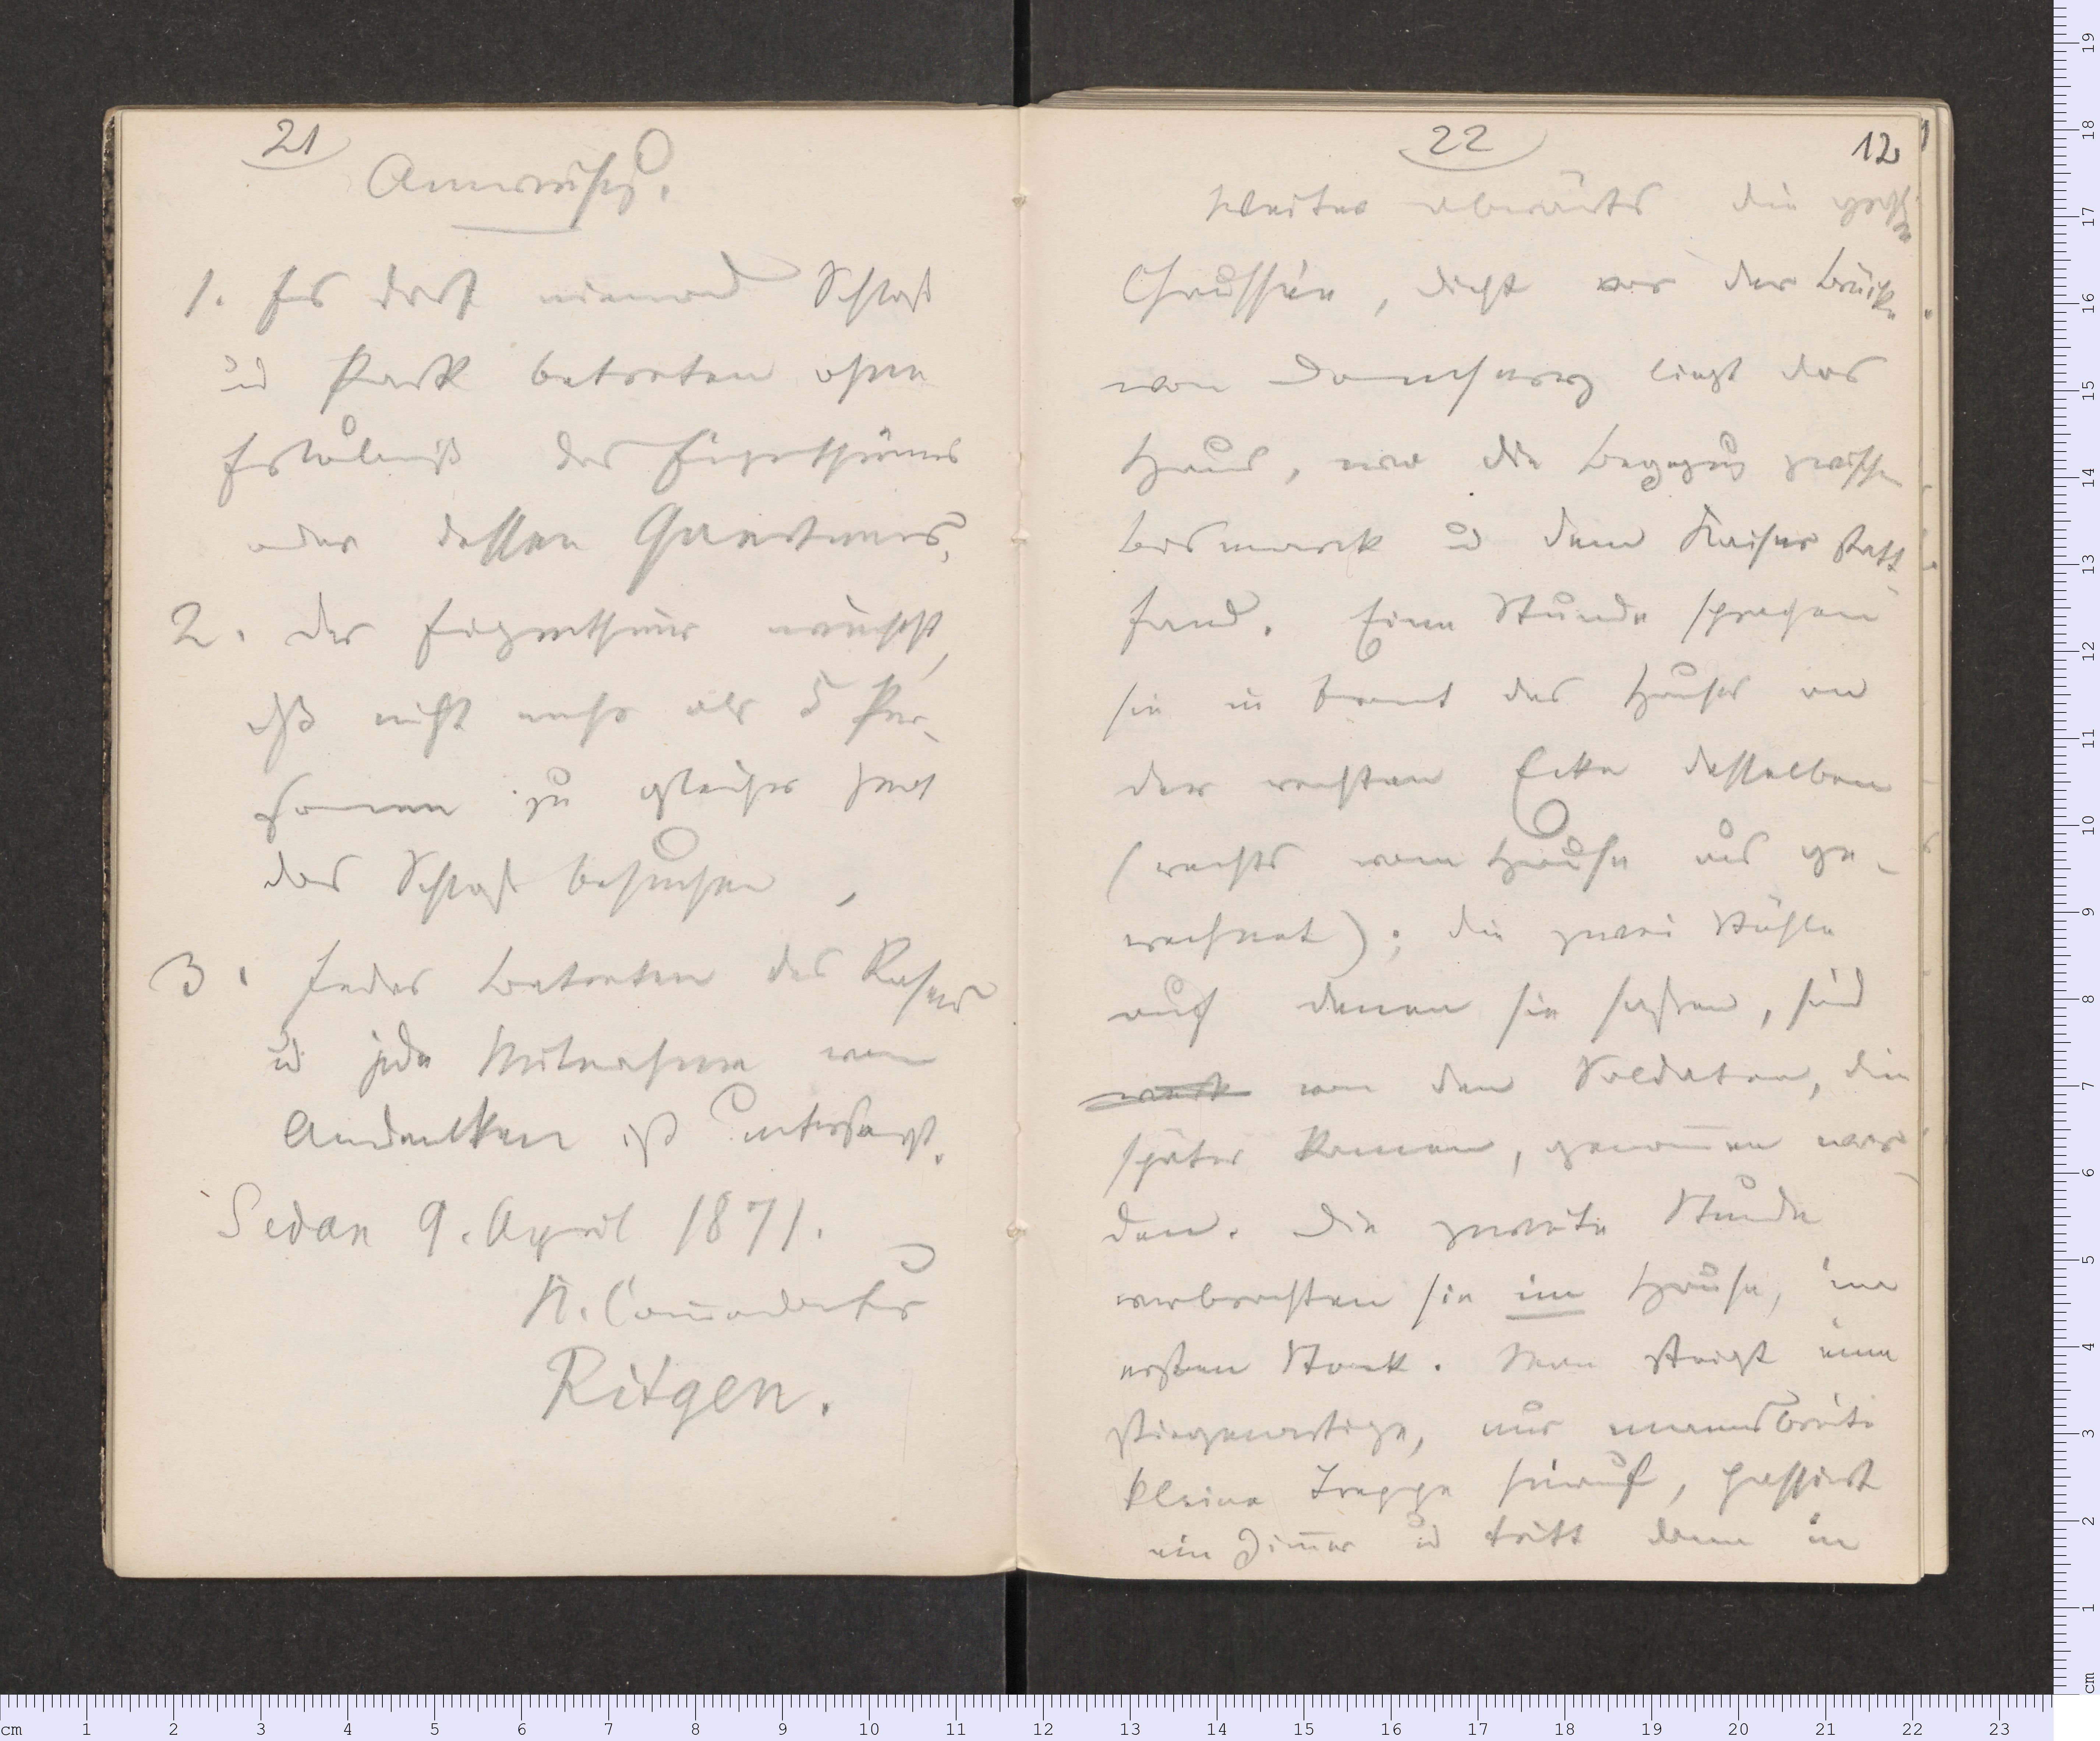 21
Anweisung.
1. Es darf niemand Schloß
u̅d Park betreten ohne
Erlaubniß des Eigenthümers
oder dessen Gärtners,
2. der Eigenthümer wünscht,
daß nicht mehr als 5 Per-
sonen zu gleicher Zeit
das Schloß besuchen,
3. Jedes Betreten des Rasens
u̅d jede Mitnahme von
Andenken ist untersagt.
Sedan 9. April 1871.
K. Com̅andantur
Ritgen.
22
12
Weiter abwärts die
Chaussée, dicht vor der Brücke
von Donchery liegt das
Haus, wo die Begegnung zwischen
Bismarck u̅d dem Kaiser statt
fand. Eine Stunde sprachen
sie in Front des Hauses an
der rechten Ecke desselben
(rechts vom Hause aus ge-
rechnet); die zwei Stühle
auf denen sie saßen, sind
von den Soldaten, die
später kamen, genom̅en wor-
den. Die zweite Stunde
verbrachten sie im Hause, im
ersten Stock. Man steigt eine
stiegenartige, nur mannsbreite
kleine Treppe hinauf, passirt
ein Zim̅er u̅d tritt dann in